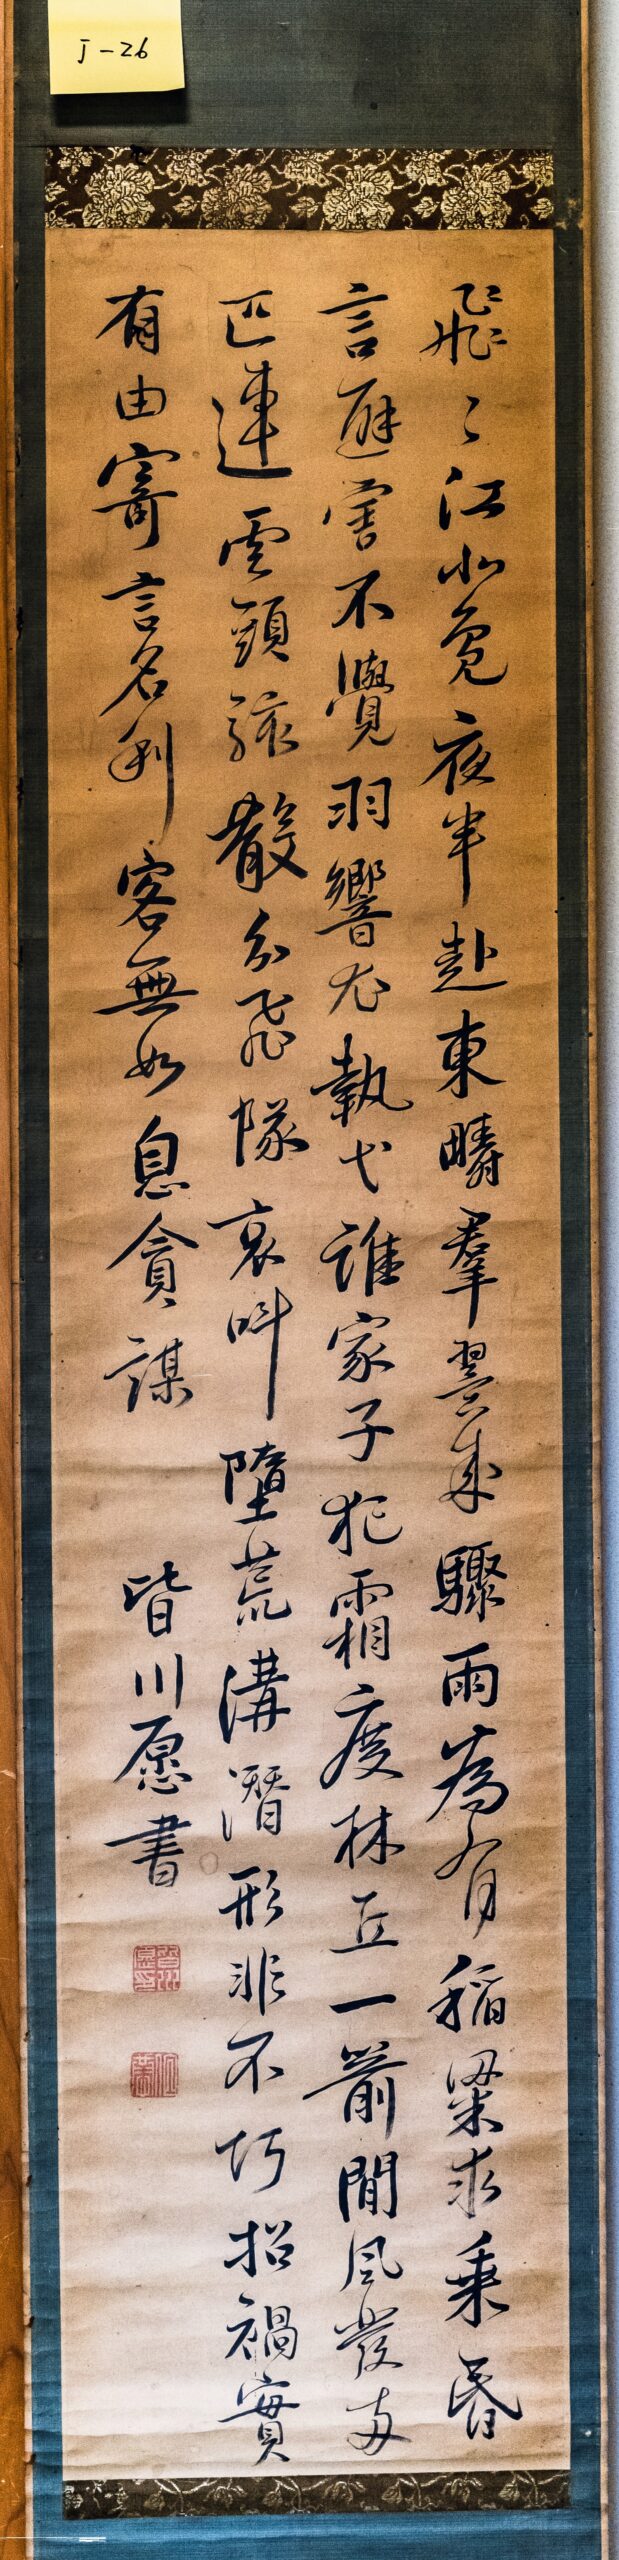 J-26
飛〻江小鳧夜半赴東疇羣翼成驟雨為有稻粱求乗昏
言避害不覺羽響尤執弋誰家子犯霜度林丘一箭聞風發両
匹連雲頭駭散分飛隊哀叫墮荒溝潜形非不巧招禍實
有由寄言名利客無如息貪謀 皆川愿書